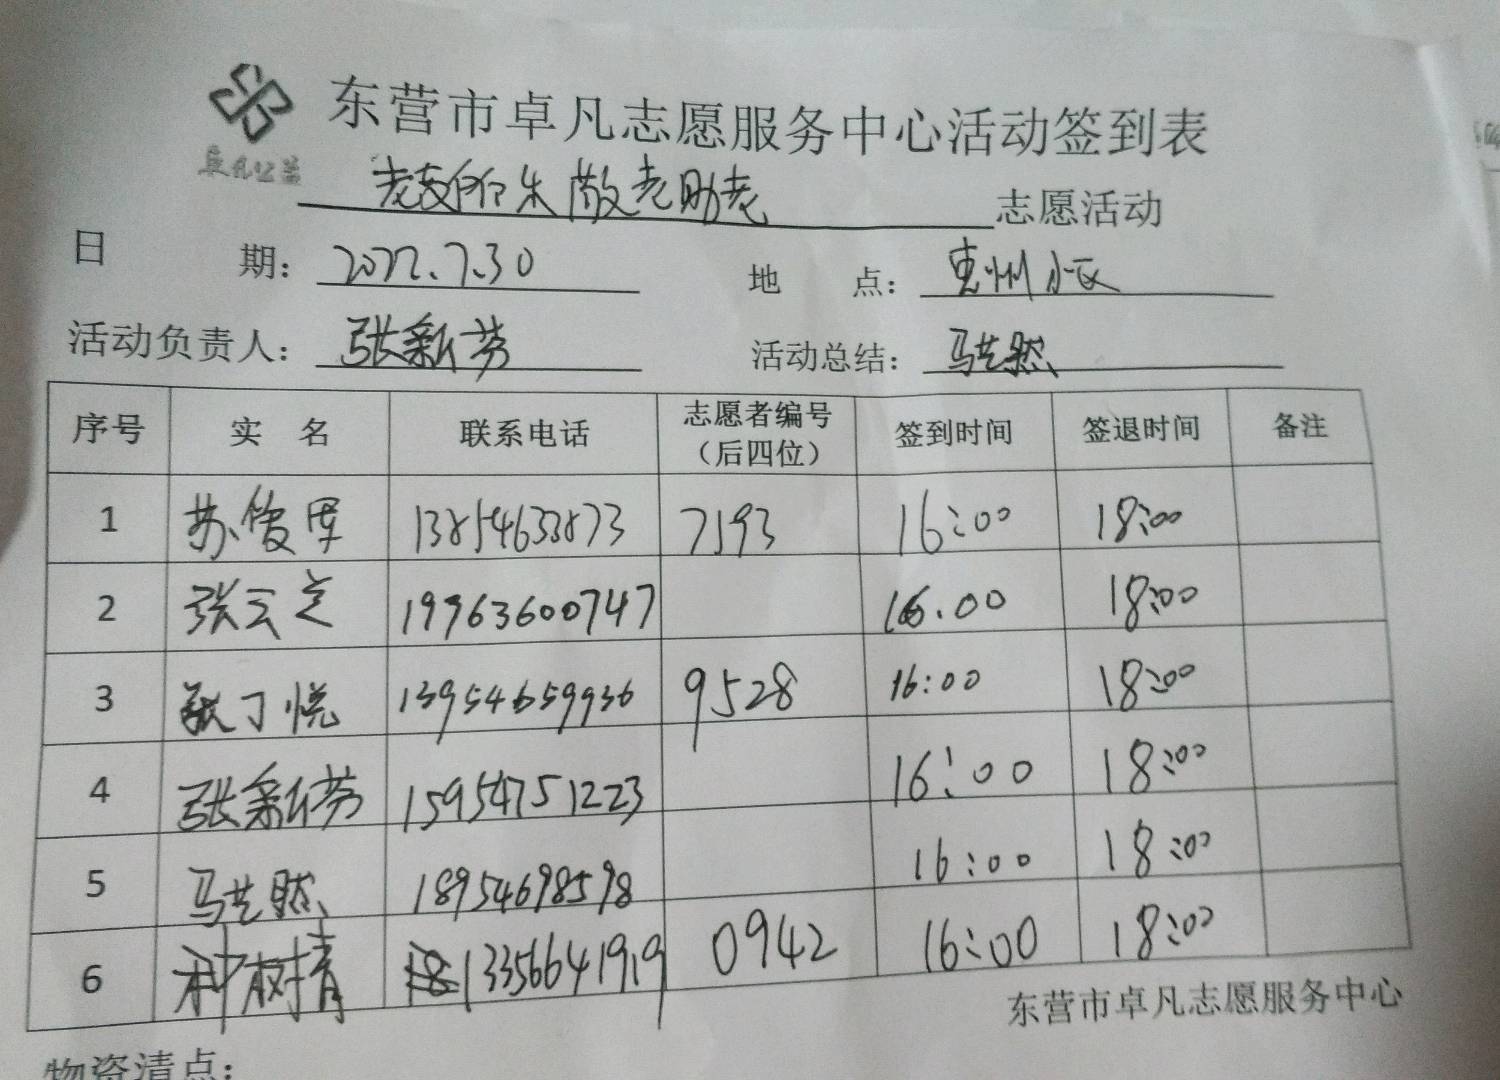 东营市卓凡志愿服务中心活动签到表
卓凡公益
敬老助老 志愿活动
日 期：2022.7.30 地 点：惠州小区
活动负责人：张新芬 活动总结：马艺然
序号 实 名 联系电话 志愿者编号（后四位） 签到时间 签退时间 备注
1 苏俊军 7193 16:00 18:00
2 张云芝 19963600747 16.00 18:00
3 丁悦 13954659936 9528 16:00 18:00
4 张新芬 15954751223 16:00 18:00
5 马艺然 18954698598 16:00 18:00
6 种树清 13356641919 0942 16:00 18:00
东营市卓凡志愿服务中心
物资清点：